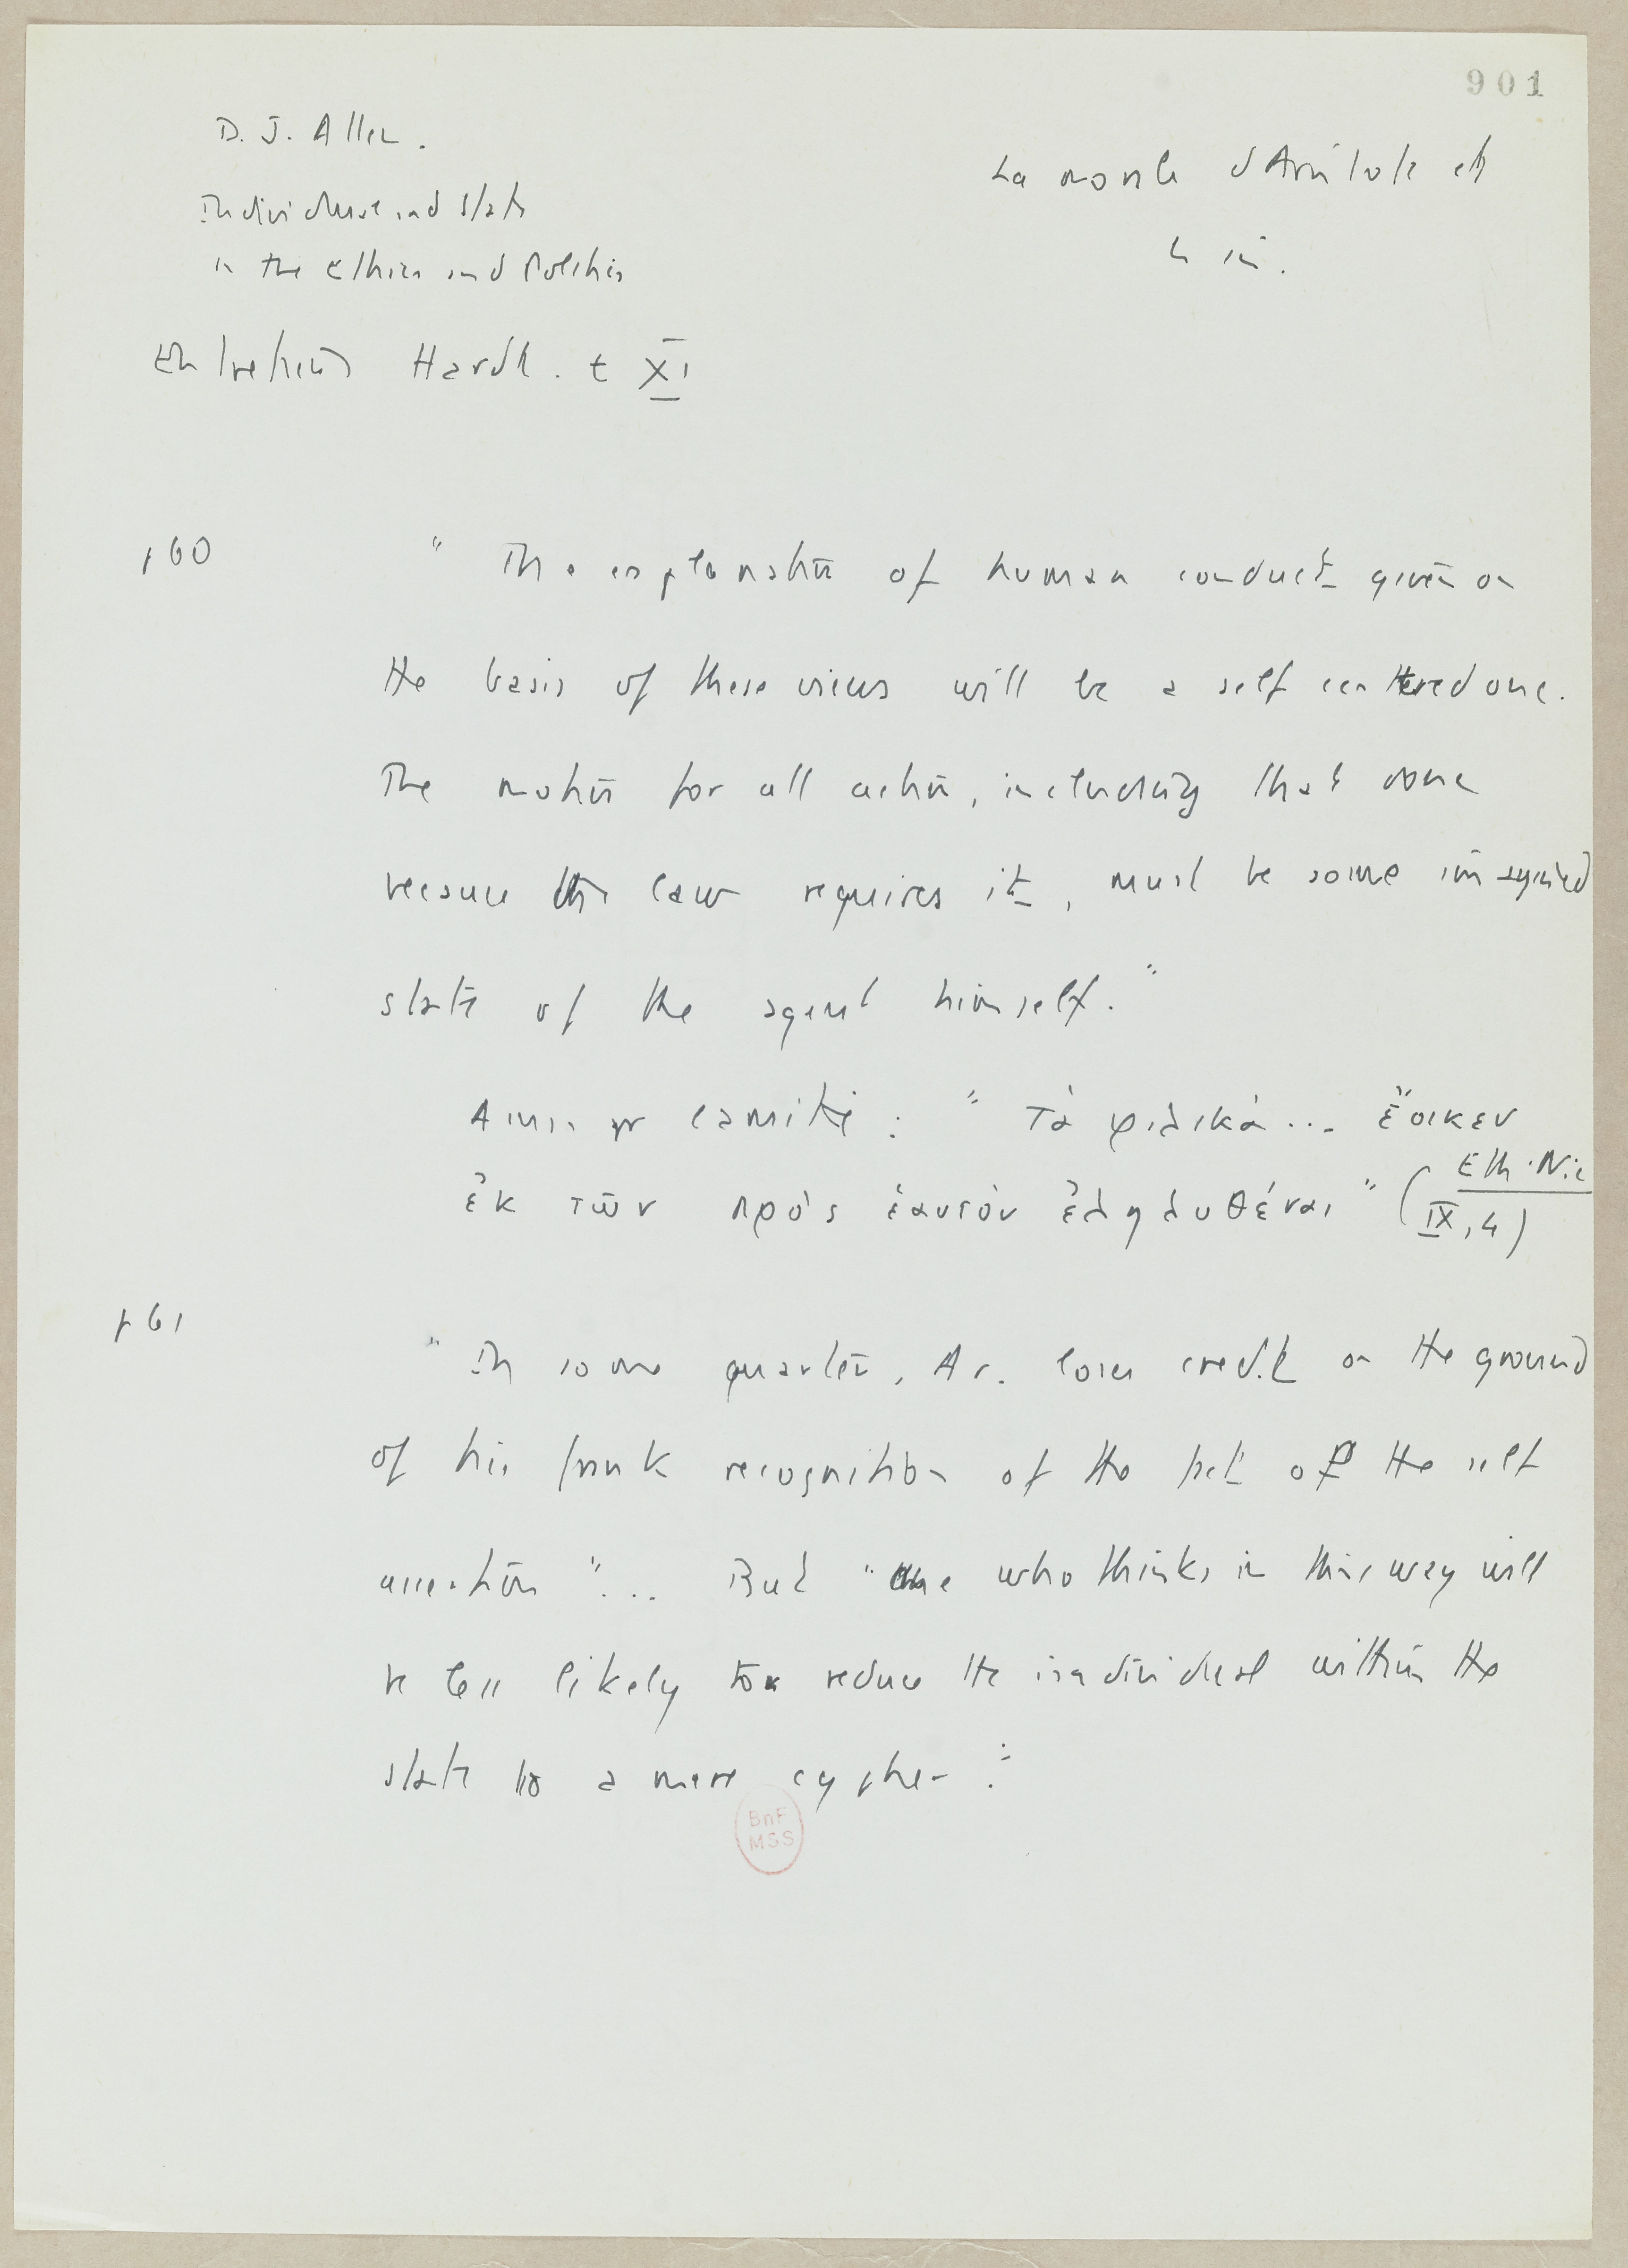 901
D. J. Allen.
Individual and State
in the Ethics and Politics
Entretiens Hardt. t XI
La morale d'Aristote et
le soi.
p 60
" The explanation of human conduct given on
the basis of these views will be a self centered one.
The motive for all action, including that done
because the law requires it, must be some imagined
state of the agent himself. "
Ainsi pr l'amitié : " Τὰ φιλικὰ ... ἔοικεν
ἐκ τῶν πρὸς ἑαυτὸν ἐληλυθέναι " (Eth. Nic
IX, 4)
p 61
" In some quarters, Ar. loses credit on the ground
of his frank recognition of the fact of the self
assertion "... But " one who thinks in this way will
be less likely to reduce the individual within the
state to a mere cypher. "
BnF
MSS